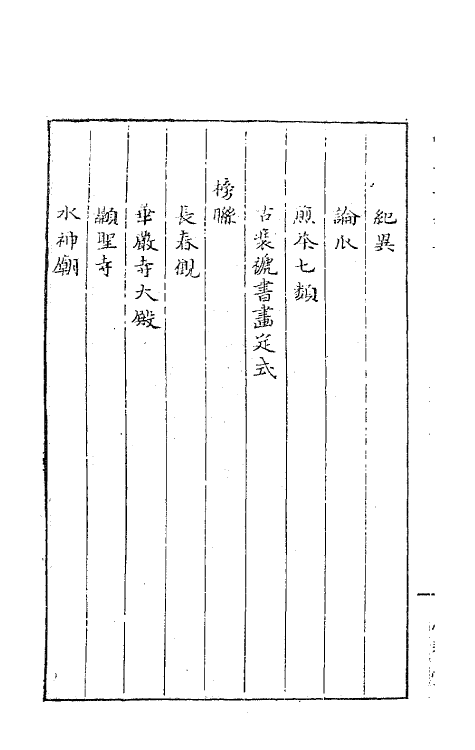 紀異
論水
煎茶七類
古裝褫書畫定式
榜聯
長春觀
華嚴寺大殿
顯聖寺
水神廟